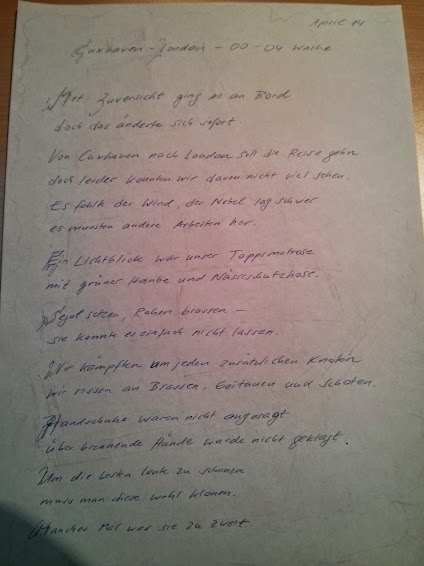 April 14
Cuxhaven - London - 00 - 04 Wache
Mit Zuversicht ging es an Bord
doch das änderte sich sofort.
Von Cuxhaven nach London soll die Reise gehn
doch leider konnten wir davon nicht viel sehen.
Es fehlt der Wind, der Nebel lag schwer
es mussten andere Arbeiten her.
Ein Lichtblick war unser Toppsmatrose
mit grüner Haube und Nässeschutzhose.
Segel setzen, Rahen brassen -
sie konnte es einfach nicht lassen.
Wir kämpften um jeden zusätzlichen Knoten
wir rissen an Brassen, Geitauen und Schoten.
Handschuhe waren nicht angesagt
über brennende Hände wurde nicht geklagt.
Um die besten Leute zu schonen
muss man diese wohl klonen.
Mancher Mal war sie zu zweit